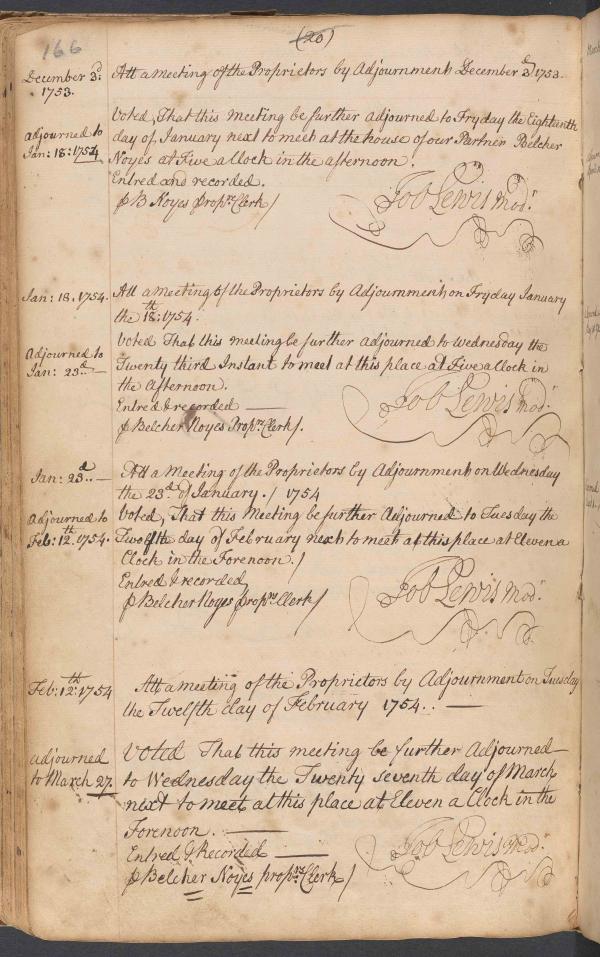 166
(20)
December 3d:
1753.
Att a meeting of the Proprietors by Adjournment December 3d 1753.
Voted, That this meeting be further adjourned to Fryday the Eighteenth
adjourned to
Jan: 18: 1754
day of January next to meet at the house of our Partner Belcher
Noyes at Five a Clock in the afternoon.
Entred and recorded.
p B Noyes Proprs Clerk /
Job Lewis Modr
Jan: 18. 1754.
Att a meeting of the Proprietors by Adjournment on Fryday January
the 18th: 1754.
Voted That this meeting be further adjourned to Wednesday the
Adjourned to
Jan: 23d..
Twenty third Instant to meet at this place at Five a Clock in
the Afternoon.
Entred & recorded
p Belcher Noyes Proprs Clerk /.
Job Lewis Modr
Jan: 23d..
Att a Meeting of the Proprietors by Adjournment on Wednesday
the 23d of January. / 1754
Adjourned to
Feb: 12th. 1754.
Voted, That this Meeting be further Adjourned to Tuesday the
Twelfth day of February next to meet at this place at Eleven a
Clock in the Forenoon. /
Entred & recorded
p Belcher Noyes proprs Clerk /
Job Lewis Modr
Feb: 12th: 1754
Att a meeting of the Proprietors by Adjournment on Tuesday
the Twelfth day of February 1754..
adjourned
to March 27.
Voted That this meeting be further Adjourned
to Wednesday the Twenty Seventh day of March
next to meet at this place at Eleven a Clock in the
Forenoon.
Entred & Recorded
p Belcher Noyes proprs Clerk /
Job Lewis Modr